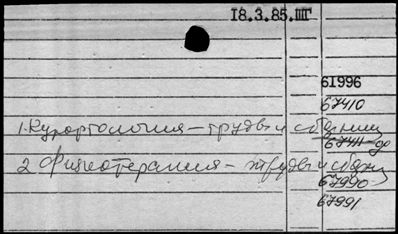 18.3.85.ШГ
61996
67410
1. Курортология – труды и сборники
67411-др
2. Физиотерапия – труды и сборн.
67990
67991